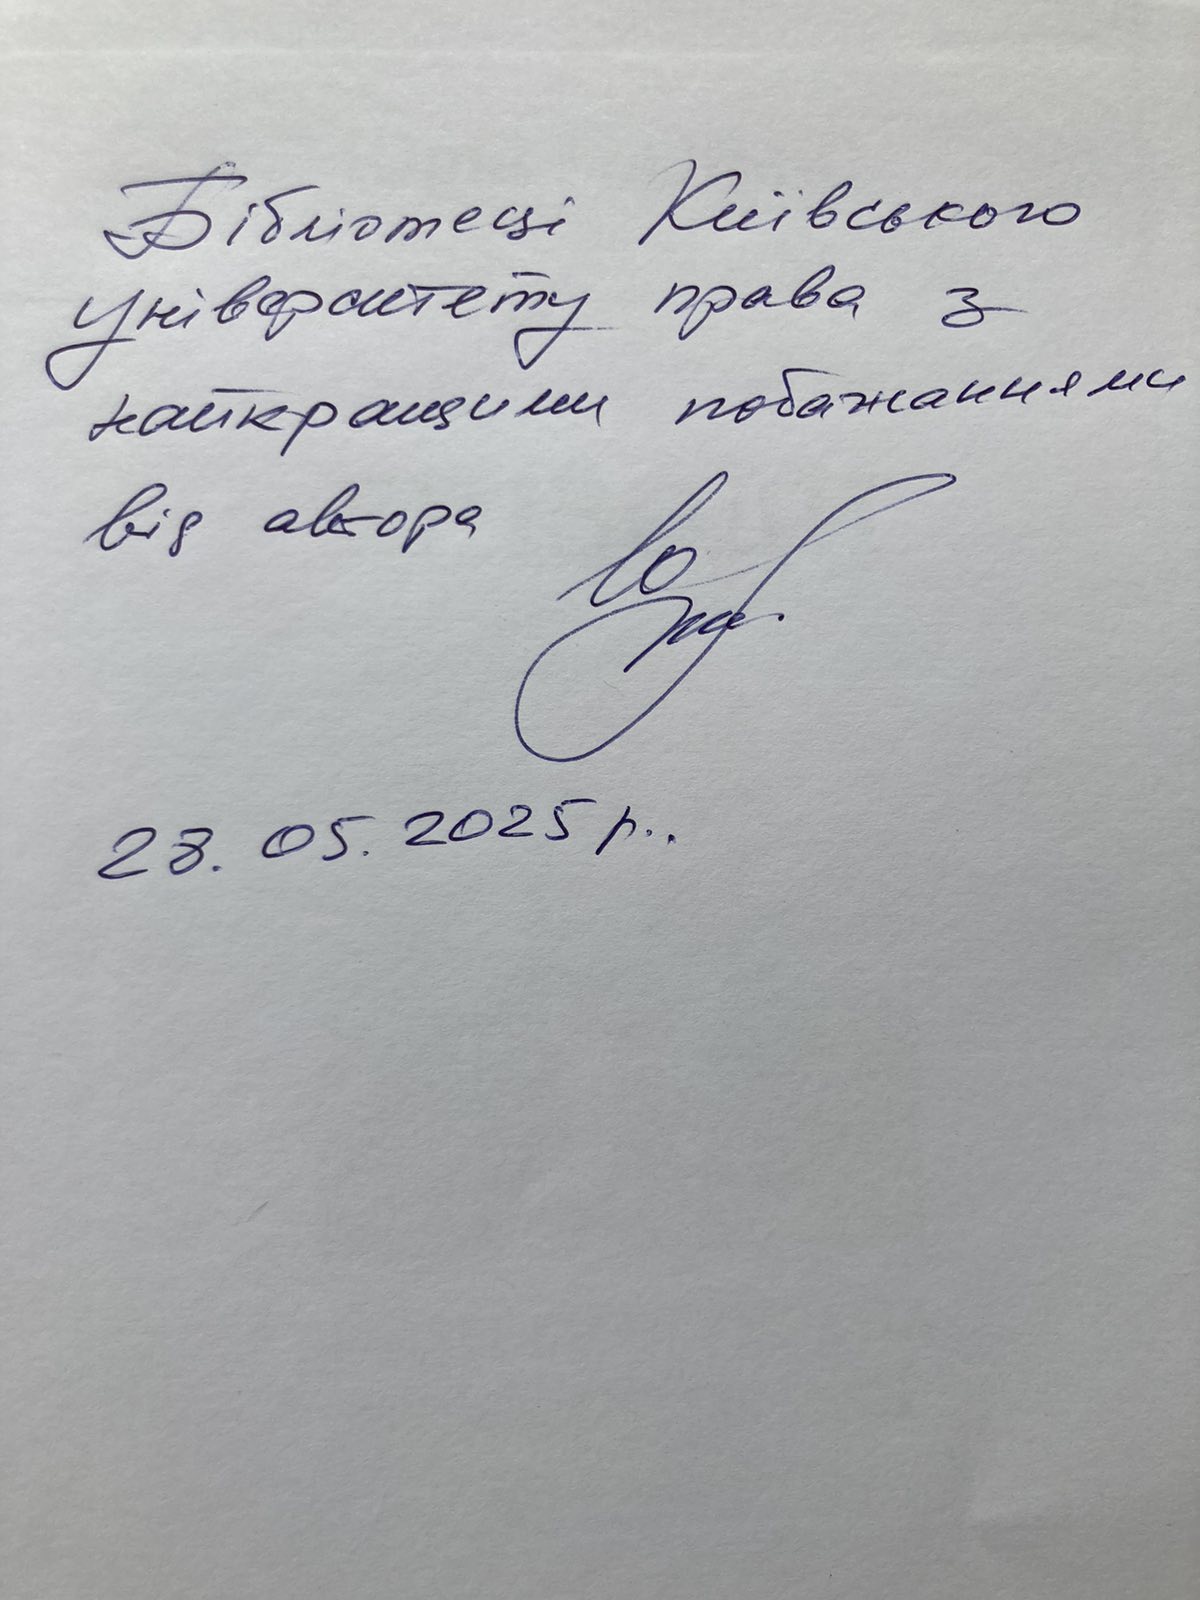 Бібліотеці Київського
університету права з
найкращими побажаннями
від автора
28.05.2025 р..